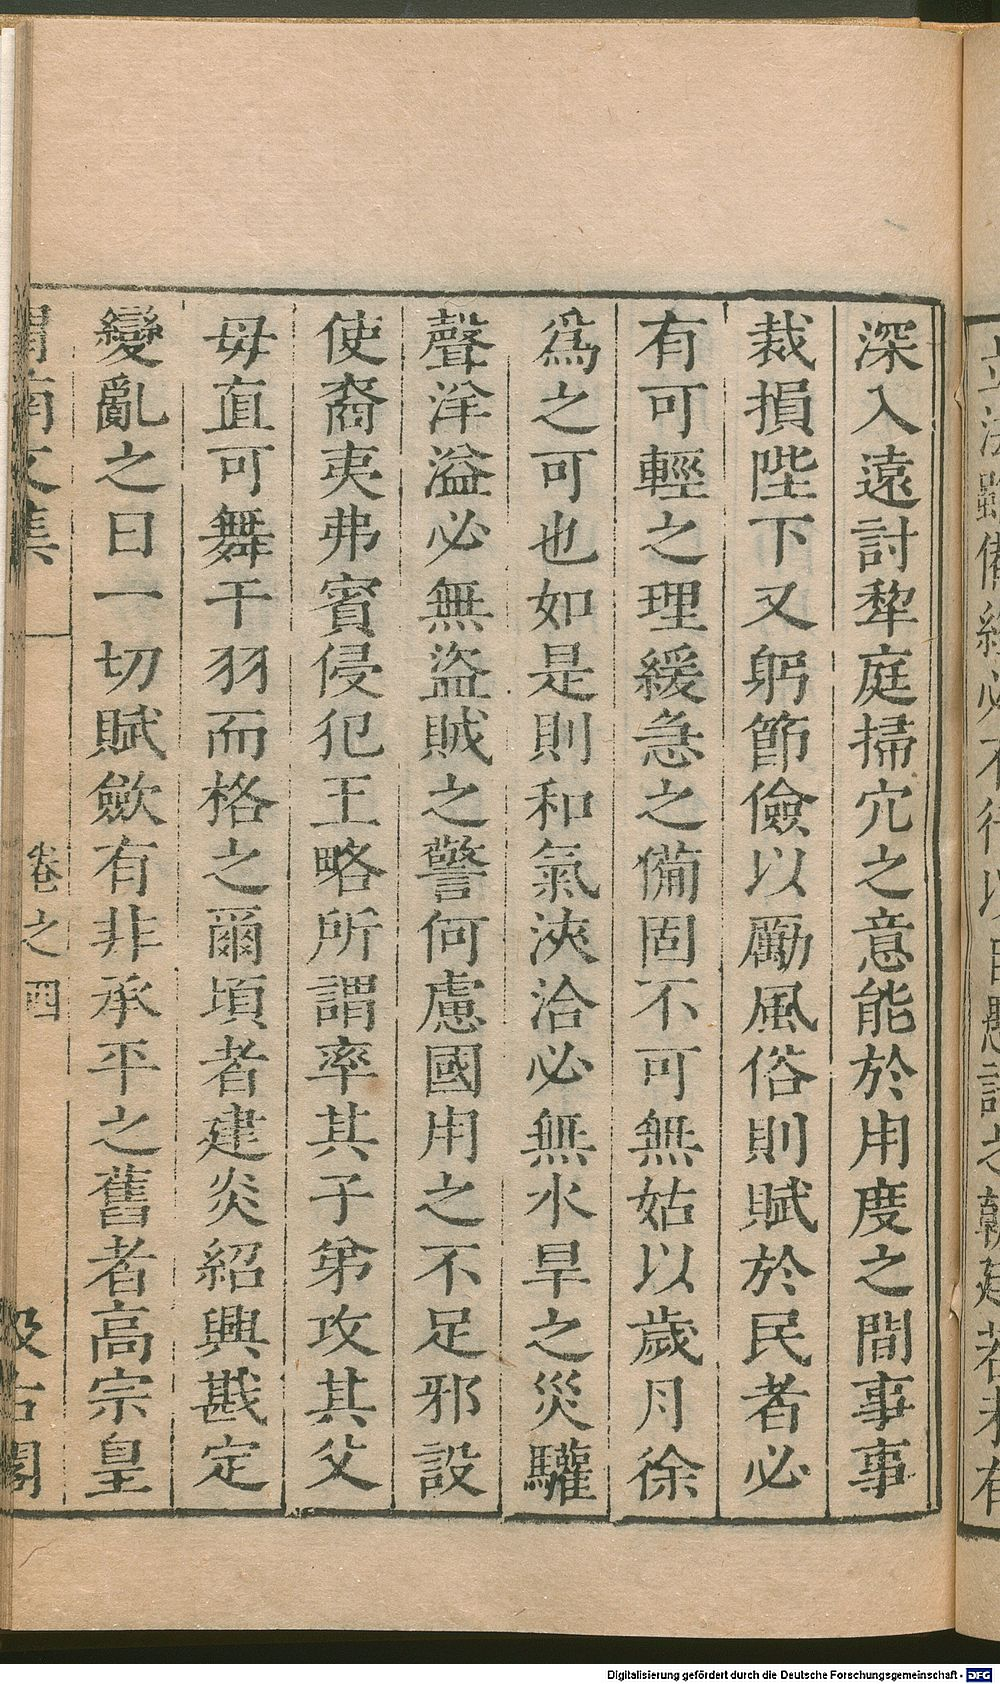 深入遠討犂庭掃穴之意能於用度之間事事
裁損陛下又躬節儉以勵風俗則賦於民者必
有可輕之理緩急之備固不可無姑以歲月徐
爲之可也如是則和氣浹洽必無水旱之災驩
聲洋溢必無盜賊之警何慮國用之不足邪設
使裔夷弗賓侵犯王略所謂率其子弟攻其父
毋直可舞干羽而格之爾頃者建炎紹興戡定
變亂之日一切賦斂有非承平之舊者高宗皇
渭南文集 卷之四 汲古閣
Digitalisierung gefördert durch die Deutsche Forschungsgemeinschaft - DFG